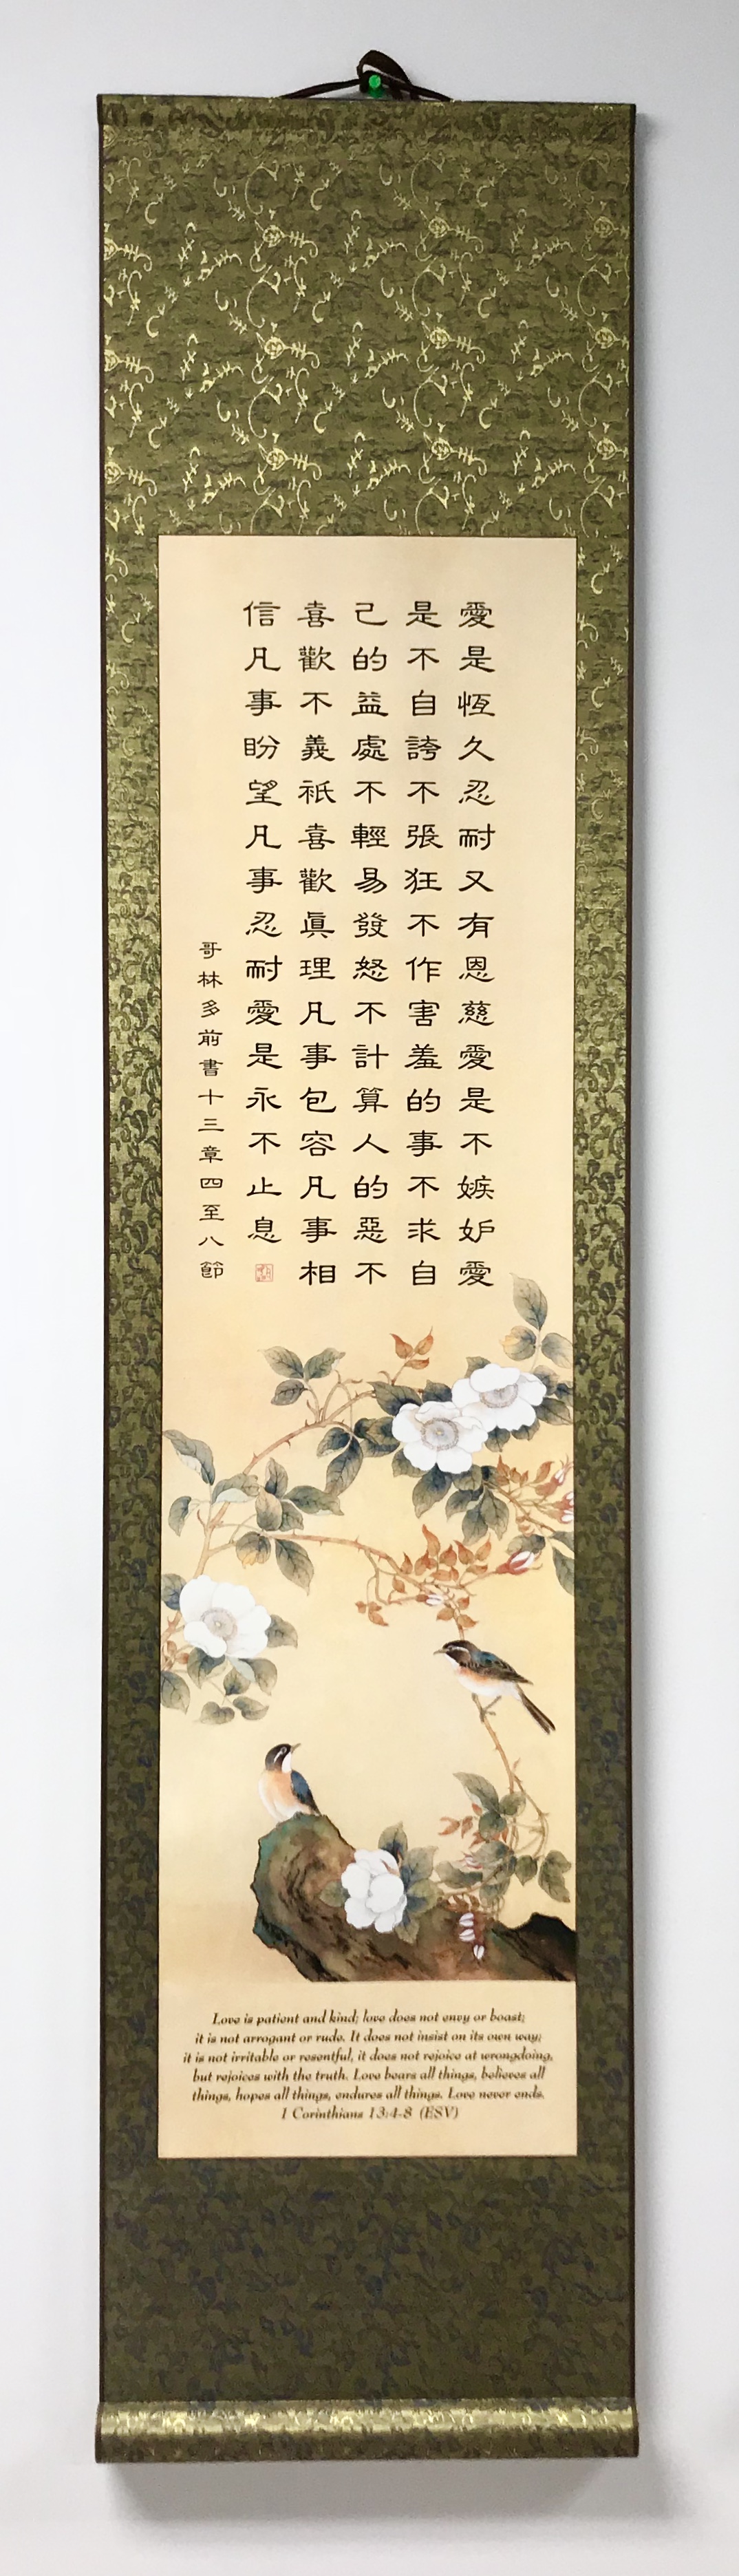 愛是恆久忍耐又有恩慈愛是不嫉妒愛
是不自誇不張狂不作害羞的事不求自
己的益處不輕易發怒不計算人的惡不
喜歡不義祇喜歡眞理凡事包容凡事相
信凡事盼望凡事忍耐愛是永不止息
哥林多前書十三章四至八節
Love is patient and kind; love does not envy or boast;
it is not arrogant or rude. It does not insist on its own way;
it is not irritable or resentful, it does not rejoice at wrongdoing,
but rejoices with the truth. Love bears all things, believes all
things, hopes all things, endures all things. Love never ends.
1 Corinthians 13:4-8 (ESV)